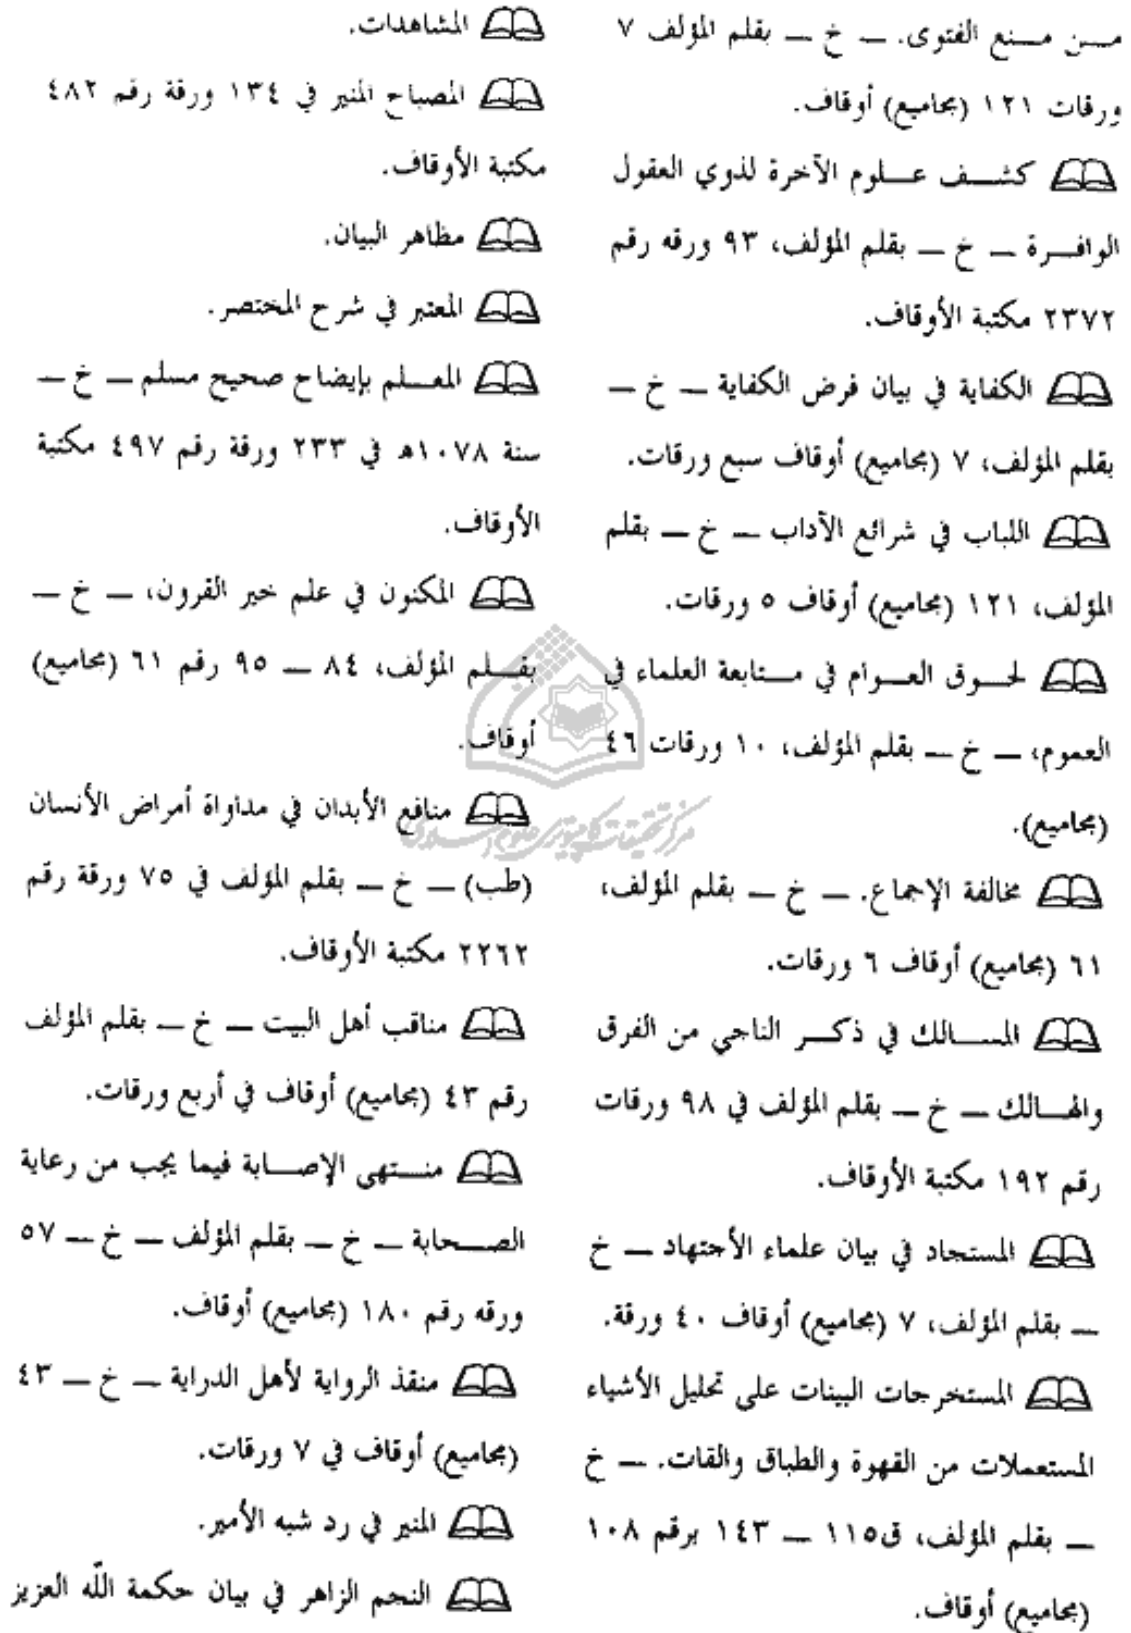 مـــن مـــنع الفتوى. ــ خ ــ بقلم المؤلف ٧
ورقات ١٢١ (مجاميع) أوقاف.
كشـــف عـــلوم الآخرة لذوي العقول
الوافـــرة ــ خ ــ بقلم المؤلف، ٩٣ ورقه رقم
٢٣٧٢ مكتبة الأوقاف.
الكفاية في بيان فرض الكفاية ــ خ ــ
بقلم المؤلف، ٧ (مجاميع) أوقاف سبع ورقات.
اللباب في شرائع الآداب ــ خ ــ بقلم
المؤلف، ١٢١ (مجاميع) أوقاف ٥ ورقات.
لحـــوق العـــوام في مـــتابعة العلماء في
العموم، ــ خ ــ بقلم المؤلف، ١٠ ورقات ٤٦
(مجاميع).
مخالفة الإجماع. ــ خ ــ بقلم المؤلف،
٦١ (مجاميع) أوقاف ٦ ورقات.
المســـالك في ذكـــر الناجي من الفرق
والهـــالك ــ خ ــ بقلم المؤلف في ٩٨ ورقات
رقم ١٩٢ مكتبة الأوقاف.
المستجاد في بيان علماء الأجتهاد ــ خ
ــ بقلم المؤلف، ٧ (مجاميع) أوقاف ٤٠ ورقة.
المستخرجات البينات على تحليل الأشياء
المستعملات من القهوة والطباق والقات. ــ خ
ــ بقلم المؤلف، ق١١٥ ــ ١٤٣ برقم ١٠٨
(مجاميع) أوقاف.
المشاهدات.
المصباح المنير في ١٣٤ ورقة رقم ٤٨٢
مكتبة الأوقاف.
مظاهر البيان.
المعتبر في شرح المختصر.
المعـــلم بإيضاح صحيح مسلم ــ خ ــ
سنة ١٠٧٨هـ في ٢٣٣ ورقة رقم ٤٩٧ مكتبة
الأوقاف.
المكنون في علم خير القرون، ــ خ ــ
بقـــلم المؤلف، ٨٤ ــ ٩٥ رقم ٦١ (مجاميع)
أوقاف.
منافع الأبدان في مداواة أمراض الأنسان
(طب) ــ خ ــ بقلم المؤلف في ٧٥ ورقة رقم
٢٢٦٢ مكتبة الأوقاف.
مناقب أهل البيت ــ خ ــ بقلم المؤلف
رقم ٤٣ (مجاميع) أوقاف في أربع ورقات.
منـــتهى الإصـــابة فيما يجب من رعاية
الصـــحابة ــ خ ــ بقلم المؤلف ــ خ ــ ٥٧
ورقه رقم ١٨٠ (مجاميع) أوقاف.
منقذ الرواية لأهل الدراية ــ خ ــ ٤٣
(مجاميع) أوقاف في ٧ ورقات.
المنير في رد شبه الأمير.
النجم الزاهر في بيان حكمة اللّه العزيز
مركز تحقيقات كامپيوتري علوم اسلامي